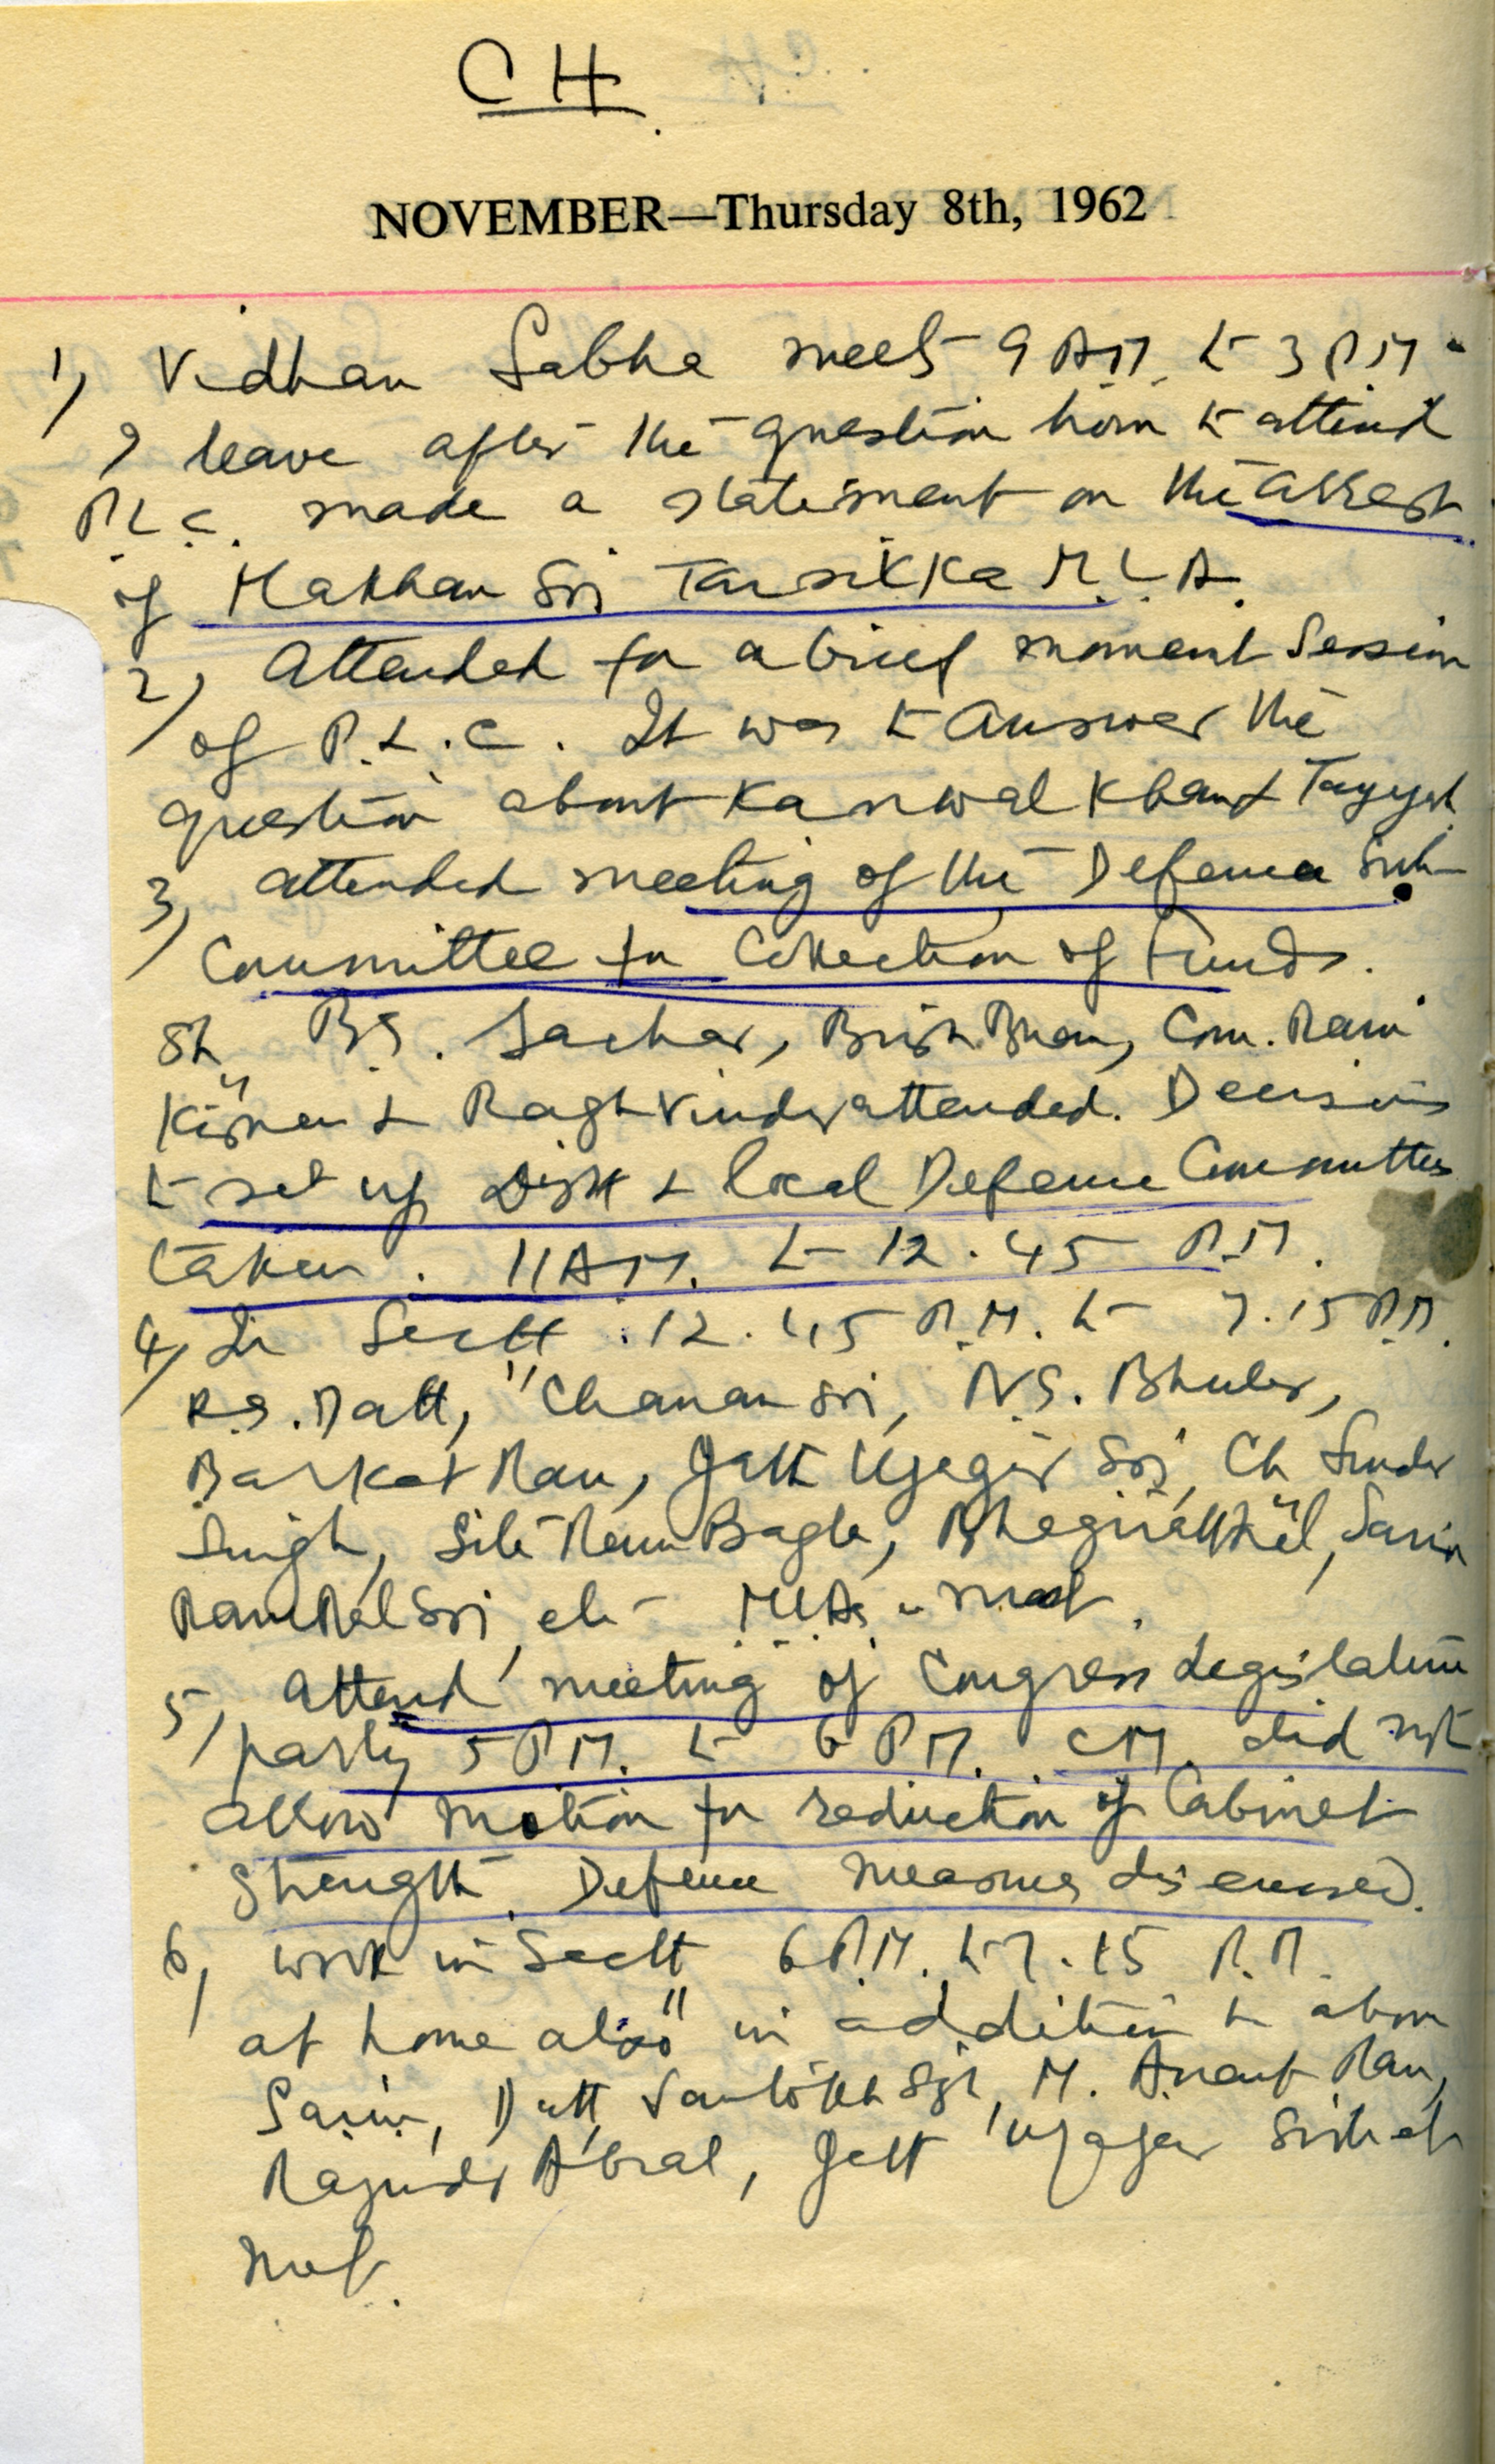 CH
NOVEMBER—Thursday 8th, 1962
1, Vidhan Sabha meets 9 A.M. to 3 P.M.
I leave after the question hour to attend
P.L.C. made a statement on the arrest
of Makhan Sri Tarsikka M.L.A.
2, Attended for a brief moment Session
of P.L.C. It was to answer the
question about Kanwal Khand
3, attended meeting of the Defence Sub-
Committee for Collection of Funds.
Sh B.S. Sachar, Brish Bhan, Com. Ram
Kishen & Raghvinder attended. Decision
to set up Distt & local Defence Committees
taken. 11 A.M. to 12.45 P.M.
4, In Sectt. 12.45 P.M. to 7.15 P.M.
Datt, Chanan Sri, N.S. Bhuler,
Barkat Ram, Jatt Ujager Sri, Ch Sunder
Singh, Sita Ram Bagla, Sarin
Ram Pal Sri, etc M.L.As met.
5, Attend meeting of Congress Legislature
party 5 P.M. to 6 P.M. C.M. did not
allow motion for reduction of Cabinet
Strength. Defence measures discussed.
6, work in Sectt 6 P.M. to 7.15 P.M.
at home also in addition to above
Sarin, Dutt, Santokh Sgh, M. Anant Ram,
Rajinder Abral, Jatt Ujager
met.